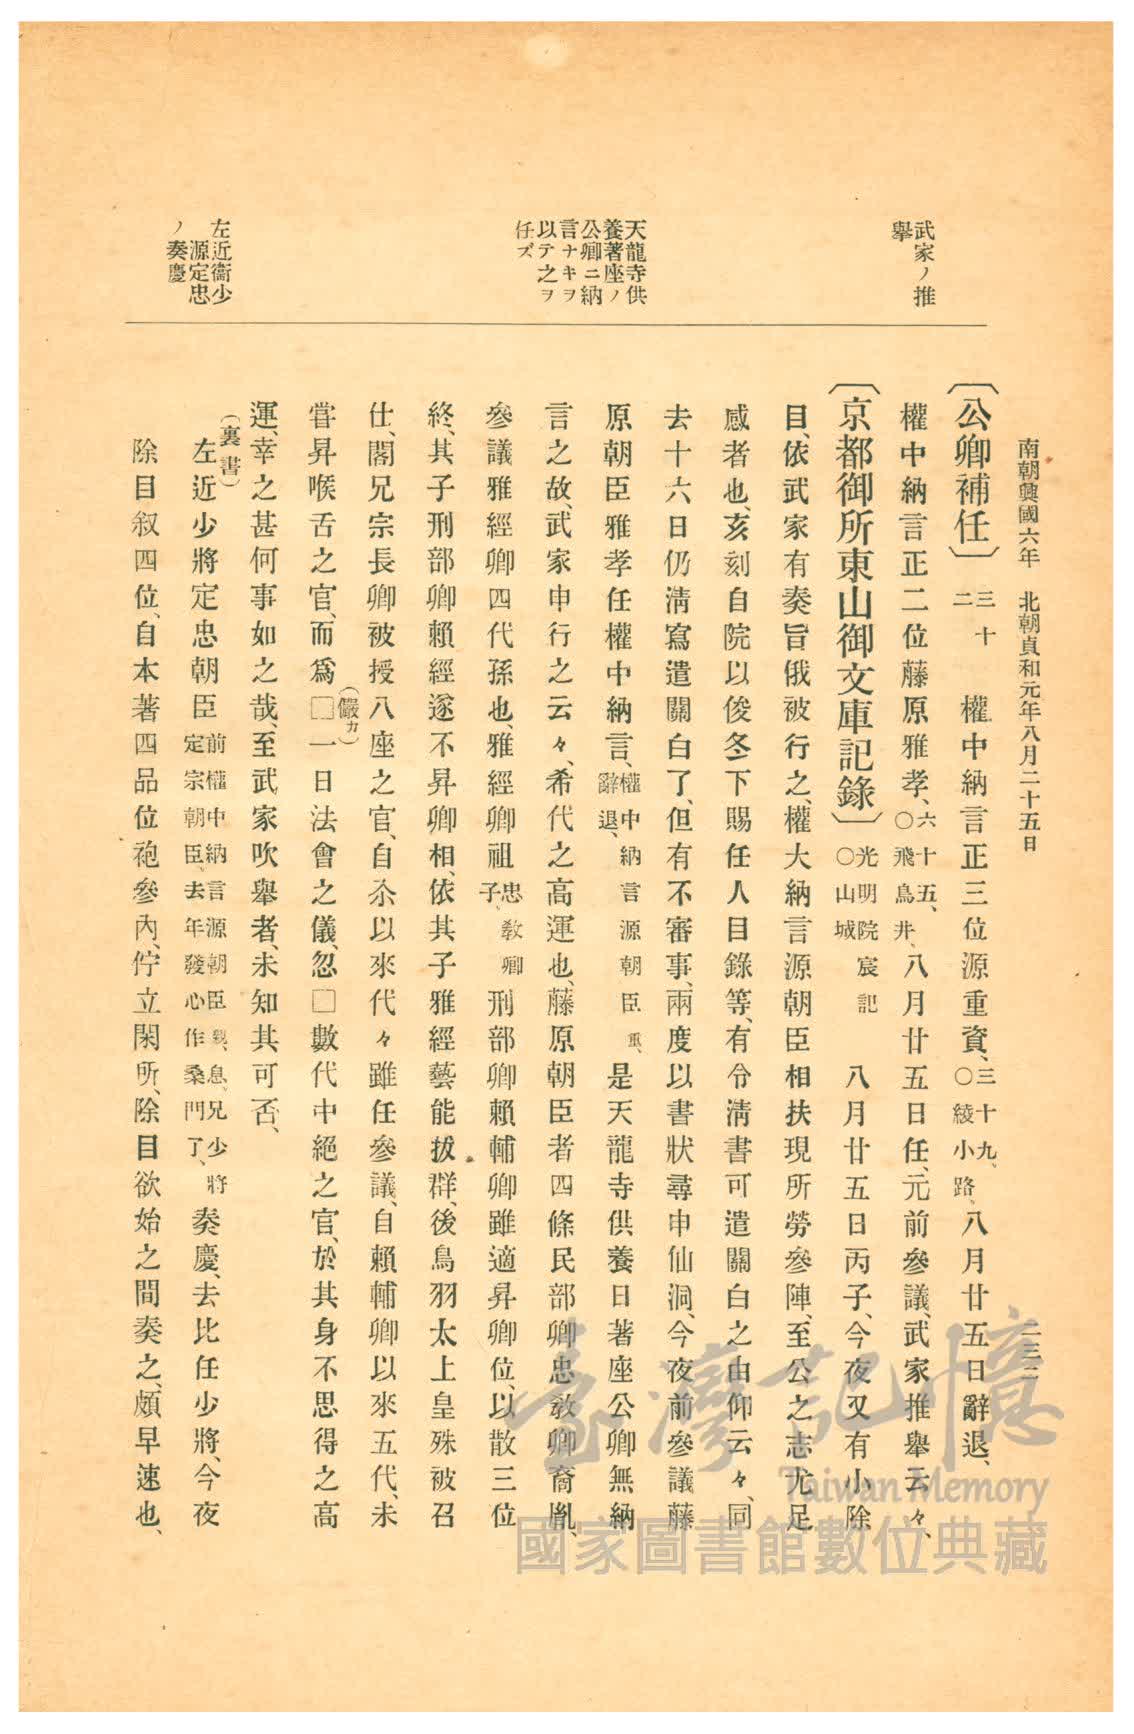 南朝興國六年　北朝貞和元年八月二十五日　二三二
武家ノ推
擧
天龍寺供
養著座ノ
公卿ニ納
言ナキヲ
以テ之ヲ
任ズ
左近衞少
源定忠
ノ奏慶
〔公卿補任〕三十二　權中納言正三位源重資、三十九、○綾小路、八月廿五日辭退、
權中納言正二位藤原雅孝、六十五、○飛鳥井、八月廿五日任、元前參議、武家推擧云々、
〔京都御所東山御文庫記錄〕○山城　光明院宸記　八月廿五日丙子、今夜又有小除
目、依武家有奏旨俄被行之、權大納言源朝臣相扶現所勞參陣、至公之志尤足
感者也、亥刻自院以俊冬下賜任人目錄等、有令淸書可遣關白之由仰云々、同
去十六日仍淸寫遣關白了、但有不審事、兩度以書狀尋申仙洞、今夜前參議藤
原朝臣雅孝任權中納言、權中納言源朝臣重、辭退、是天龍寺供養日著座公卿無納
言之故、武家申行之云々、希代之高運也、藤原朝臣者四條民部卿忠敎卿裔胤、
參議雅經卿四代孫也、雅經卿祖忠敎卿子、刑部卿賴輔卿雖適昇卿位、以散三位
終、其子刑部卿賴經遂不昇卿相、依其子雅經藝能拔群、後鳥羽太上皇殊被召
仕、閣兄宗長卿被授八座之官、自尒以來代々雖任參議、自賴輔卿以來五代、未
嘗昇喉舌之官、而爲□（儼カ）一日法會之儀、忽□數代中絕之官、於其身不思得之高
運、幸之甚何事如之哉、至武家吹擧者、未知其可否、
（裏書）
左近少將定忠朝臣前權中納言源朝臣息、兄少將定宗朝臣、去年發心作桑門了、奏慶、去比任少將、今夜
除目叙四位、自本著四品位袍參內、佇立閑所、除目欲始之間奏之、頗早速也、
臺灣記憶
Taiwan Memory
國家圖書館數位典藏